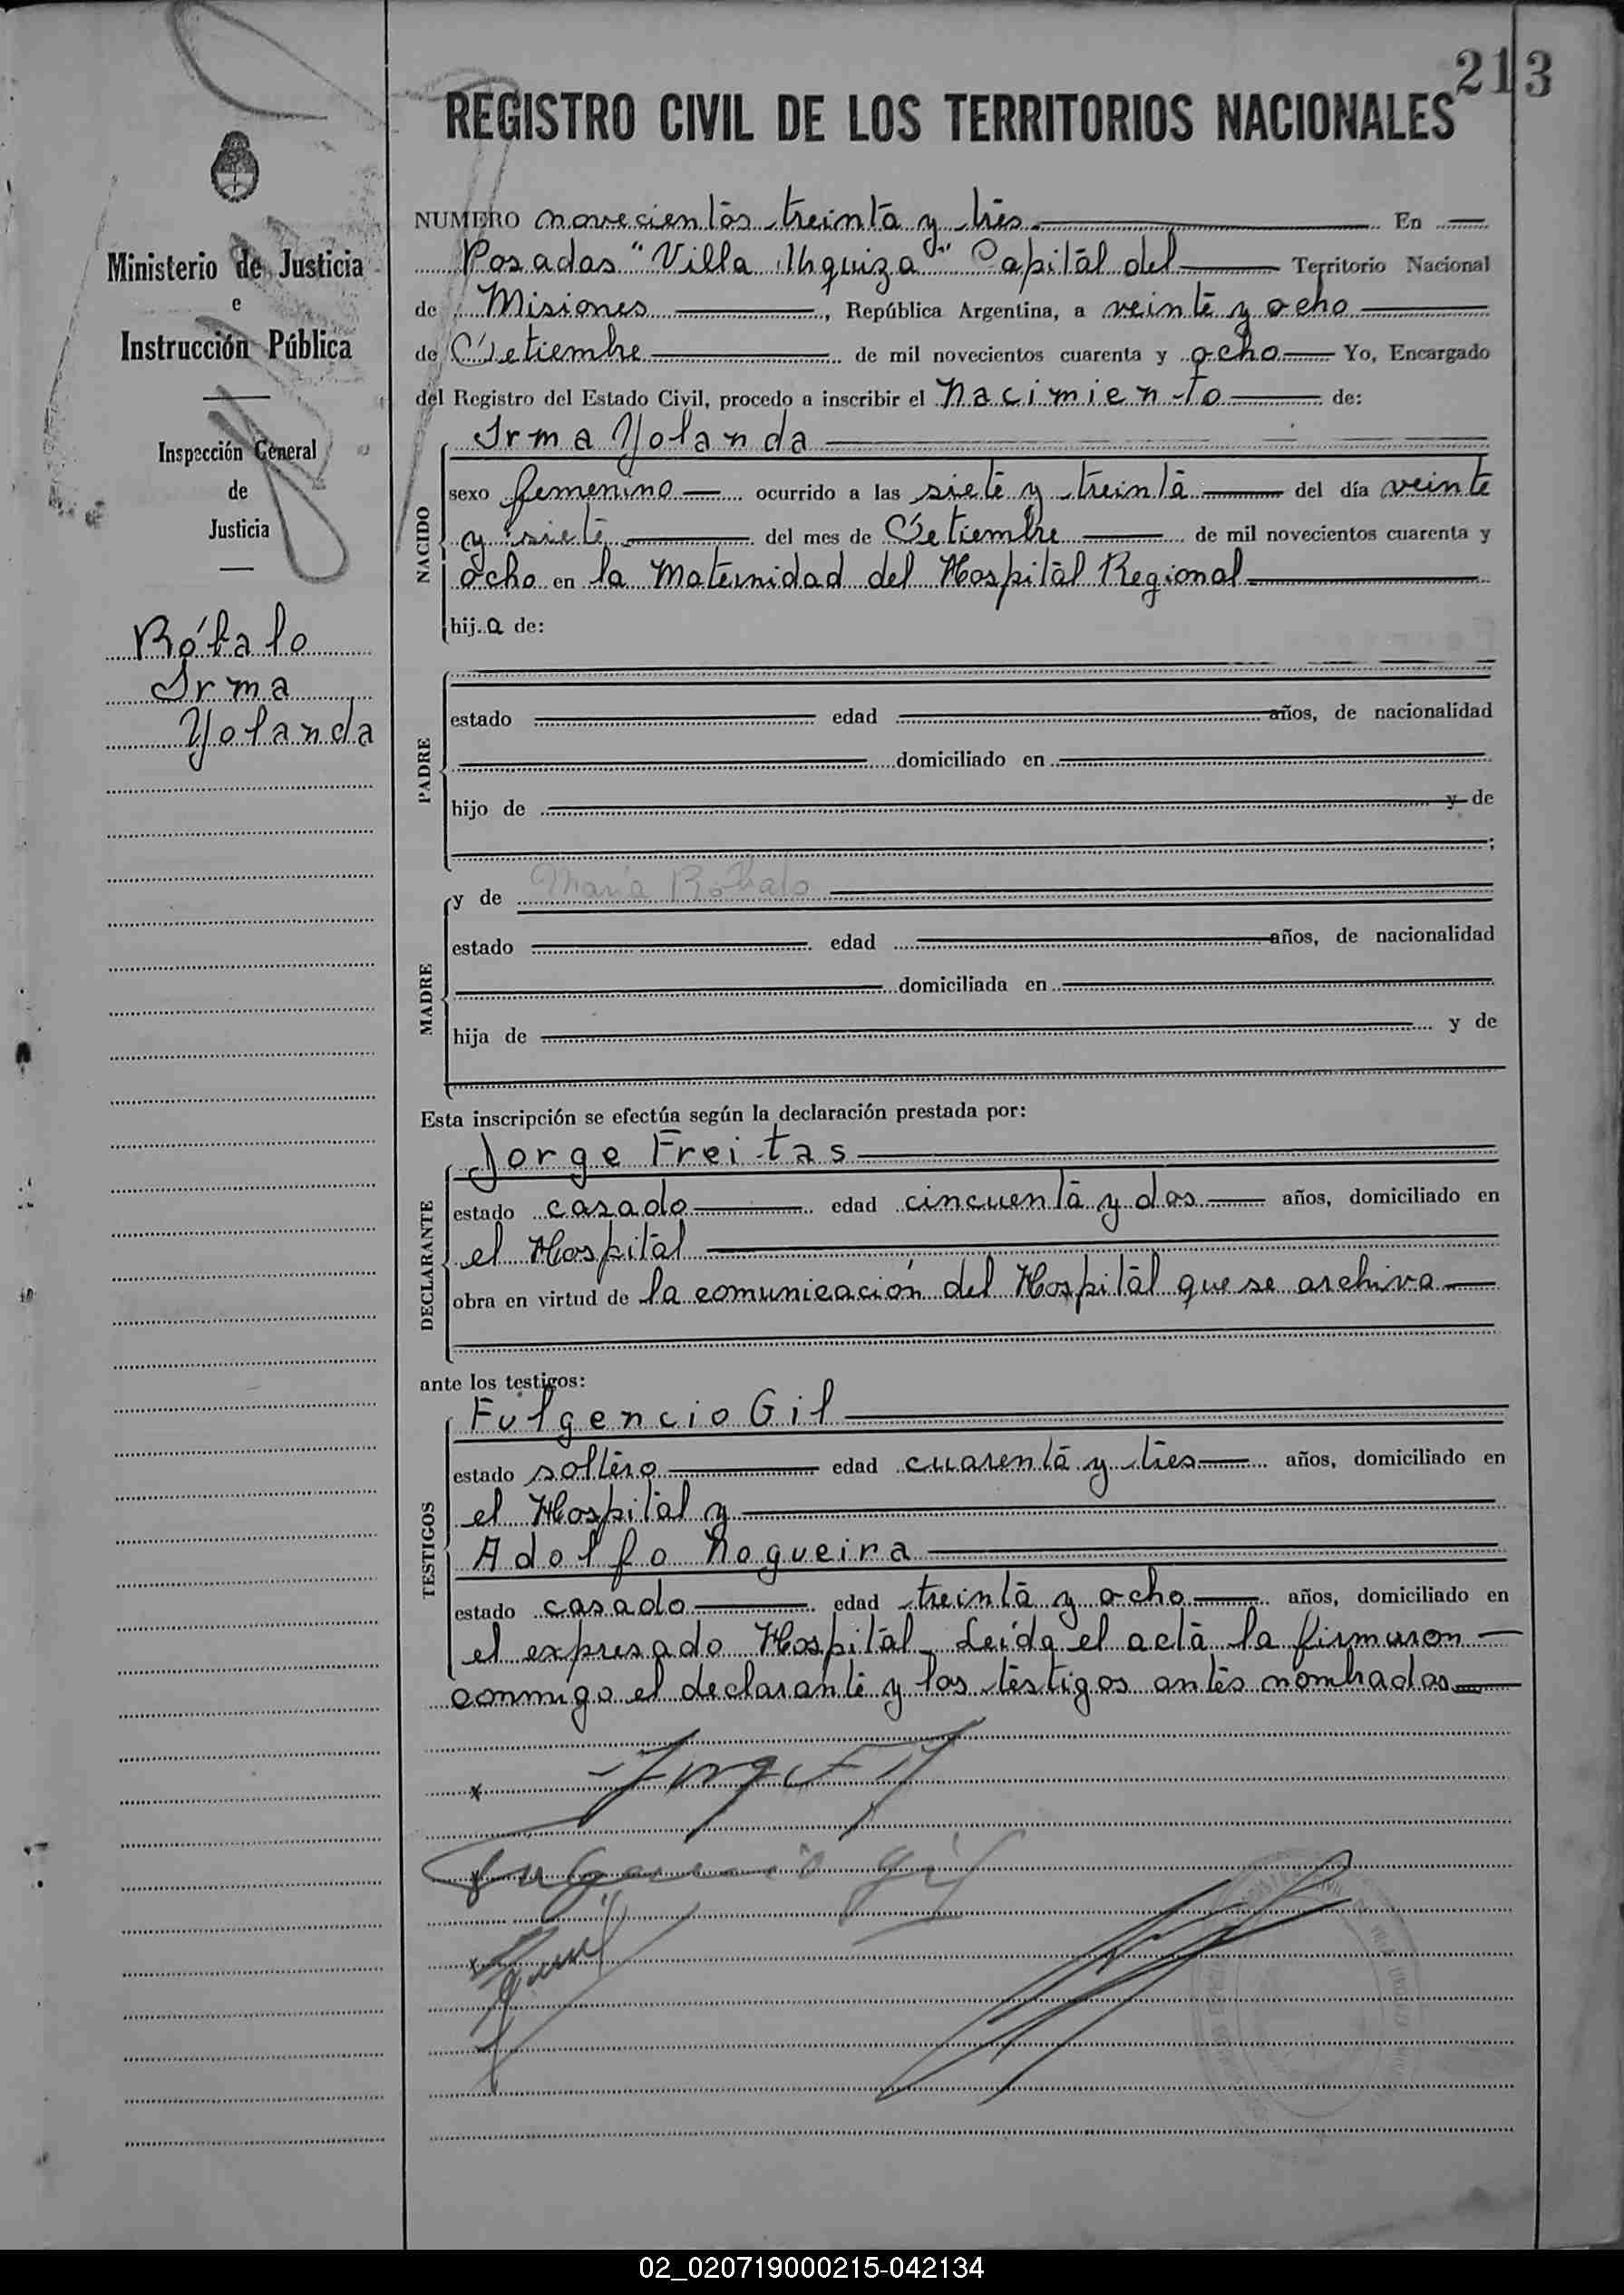 213
REGISTRO CIVIL DE LOS TERRITORIOS NACIONALES
Ministerio de Justicia
e
Instrucción Pública
Inspección General
de
Justicia
Róbalo
Irma
Yolanda
NUMERO novecientos treinta y tres En
Posadas "Villa Urquiza" Capital del Territorio Nacional
de Misiones, República Argentina, a veinte y ocho
de Setiembre de mil novecientos cuarenta y ocho Yo, Encargado
del Registro del Estado Civil, procedo a inscribir el Nacimiento de:
NACIDO
Irma Yolanda
sexo femenino ocurrido a las siete y treinta del día veinte
y siete del mes de Setiembre de mil novecientos cuarenta y
ocho en la Maternidad del Hospital Regional
hija de:
PADRE
estado edad años, de nacionalidad
domiciliado en
hijo de y de
;
MADRE
y de María Róbalo
estado edad años, de nacionalidad
domiciliada en
hija de y de
Esta inscripción se efectúa según la declaración prestada por:
DECLARANTE
Jorge Freitas
estado casado edad cincuenta y dos años, domiciliado en
el Hospital
obra en virtud de la comunicación del Hospital que se archiva
ante los testigos:
TESTIGOS
Fulgencio Gil
estado soltero edad cuarenta y tres años, domiciliado en
el Hospital y
Adolfo Nogueira
estado casado edad treinta y ocho años, domiciliado en
el expresado Hospital. Leída el acta la firmaron
conmigo el declarante y los testigos antes nombrados
x
Fulgencio Gil
x
02_020719000215-042134